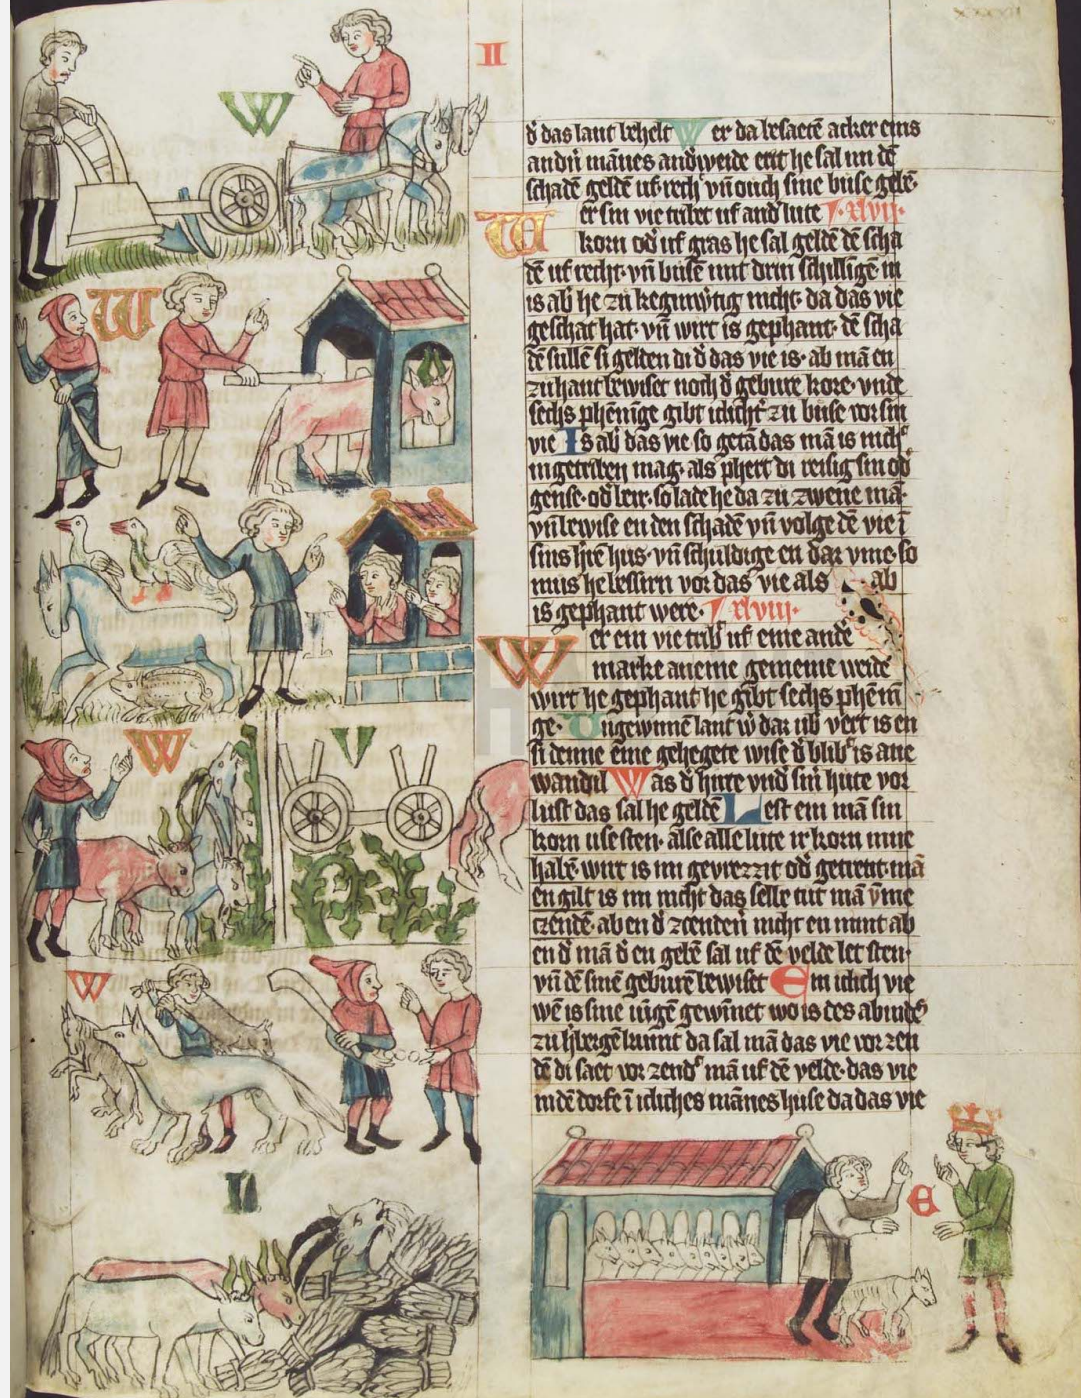 II
W
d̕ das lant behelt Wer da besaetē acker eins
andn̄ mānes and̕weide erit he sal im dē
schadē geldē uf rech̕ vn̄ ouch sine buse gebē·
Wer sin vie tribet uf and̕ lute · xlvii·
korn od̕ uf gras he sal geldē dē scha
dē uf recht· vn̄ busen mit drin schillīgē in
is ab he zu keginw̕tig nicht· da das vie
geschat hat· vn̄ wirt is gephant· dē scha
dē sullē si gelten di d̕ das vie is· ab mā en
zuhant bewiset noch d̕ gebure kore· vnde
sechs phēnīge gibt iclich̕ zu buse vor sin
vie Is ab̕ das vie so getā das mā is nich̕
in getriben mag· als phert di reisig sin od̕
gense· od̕ ber· so lade he da zu zwene mā·
vn̄ bewise en den schadē vn̄ volge dē vie ī
sins h̕rē hus· vn̄ schuldige en dar vme· so
mus he bessirn vor das vie als ab
is gephant were· xlviii·
Wer ein vie trib̕ uf eine ande
marke an eine gemeine weide
wirt he gephant he gibt sechs phēnī
ge· Vngewunnē lant w̕ dar ub̕ vert is en
si denne eine gehegete wise d̕ blib̕ is ane
wandil Was d̕ hirte vnd̕ sin̄ hute vor
lust das sal he geldē Lest ein mā sin
korn use sten· alse alle lute ir korn inne
habē· wirt is im gevrezzit od̕ getrent· mā
en gilt is im nicht das selbe tut mā v̄me
czendē· ab en d̕ zcenden̄ nicht en nimt ab
en d̕ mā d̕ en gebē sal uf dē velde let sten·
vn̄ dē sinē geburē bewiset Ein iclich vie
wē is sine iūgē gewīnet wo is des abindes̕
zu h̕bergē kumt da sal mā das vie vorzen
dē di saet vorzend̕ mā uf dē velde· das vie
in dē dorfe ī icliches mānes huse da das vie
W
W
V
W
E